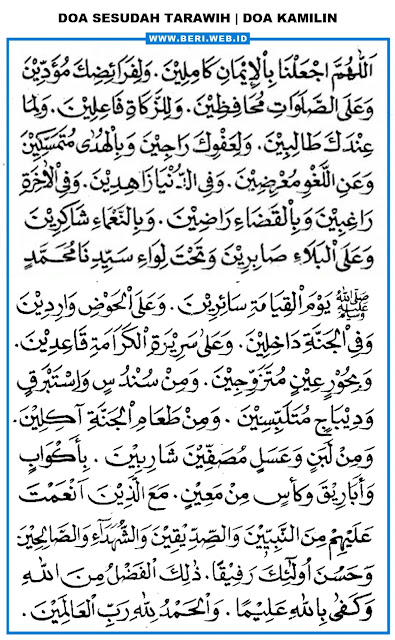 DOA SESUDAH TARAWIH | DOA KAMILIN
WWW.BERI.WEB.ID
اَللّٰهُمَّ اجْعَلْنَا بِالْإِيْمَانِ كَامِلِيْنَ. وَلِفَرَائِضِكَ مُؤَدِّيْنَ
وَعَلَى الصَّلَوَاتِ مُحَافِظِيْنَ. وَلِلزَّكَاةِ فَاعِلِيْنَ. وَلِمَا
عِنْدَكَ طَالِبِيْنَ. وَلِعَفْوِكَ رَاجِيْنَ وَبِالْهُدَى مُتَمَسِّكِيْنَ
وَعَنِ اللَّغْوِ مُعْرِضِيْنَ. وَفِى الدُّنْيَا زَاهِدِيْنَ. وَفِى الْاٰخِرَةِ
رَاغِبِيْنَ وَبِالْقَضَاءِ رَاضِيْنَ. وَبِالنَّعْمَاءِ شَاكِرِيْنَ
وَعَلَى الْبَلَاءِ صَابِرِيْنَ وَتَحْتَ لِوَاءِ سَيِّدِنَا مُحَمَّدٍ
ﷺ يَوْمَ الْقِيَامَةِ سَائِرِيْنَ. وَعَلَى الْحَوْضِ وَارِدِيْنَ
وَفِى الْجَنَّةِ دَاخِلِيْنَ. وَعَلَى سَرِيْرَةِ الْكَرَامَةِ قَاعِدِيْنَ.
وَبِحُوْرٍ عِيْنٍ مُتَزَوِّجِيْنَ. وَمِنْ سُنْدُسٍ وَاِسْتَبْرَقٍ
وَدِيْبَاجٍ مُتَلَبِّسِيْنَ. وَمِنْ طَعَامِ الْجَنَّةِ آكِلِيْنَ.
وَمِنْ لَبَنٍ وَعَسَلٍ مُصَفَّيْنَ شَارِبِيْنَ. بِأَكْوَابٍ
وَأَبَارِيْقَ وَكَأْسٍ مِنْ مَعِيْنٍ. مَعَ الَّذِيْنَ اَنْعَمْتَ
عَلَيْهِمْ مِنَ النَّبِيِّيْنَ وَالصِّدِّيْقِيْنَ وَالشُّهَدَآءِ وَالصَّالِحِيْنَ
وَحَسُنَ اُولٰئِكَ رَفِيْقًا. ذٰلِكَ الْفَضْلُ مِنَ اللهِ
وَكَفَى بِاللهِ عَلِيْمًا. وَالْحَمْدُ لِلهِ رَبِّ الْعَالَمِيْنَ.